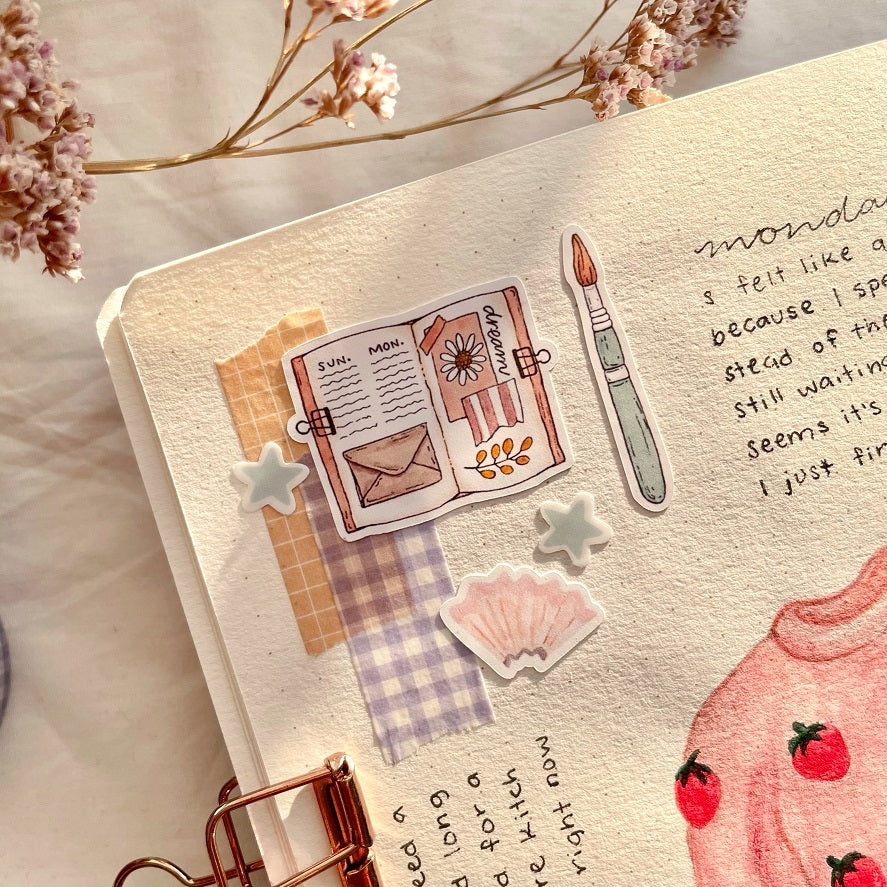 SUN. MON.
dream
monda
s felt like a
because I spe
stead of the
still waiting
seems it's
I just fin
eed a
d long
d for a
re kitch
right now